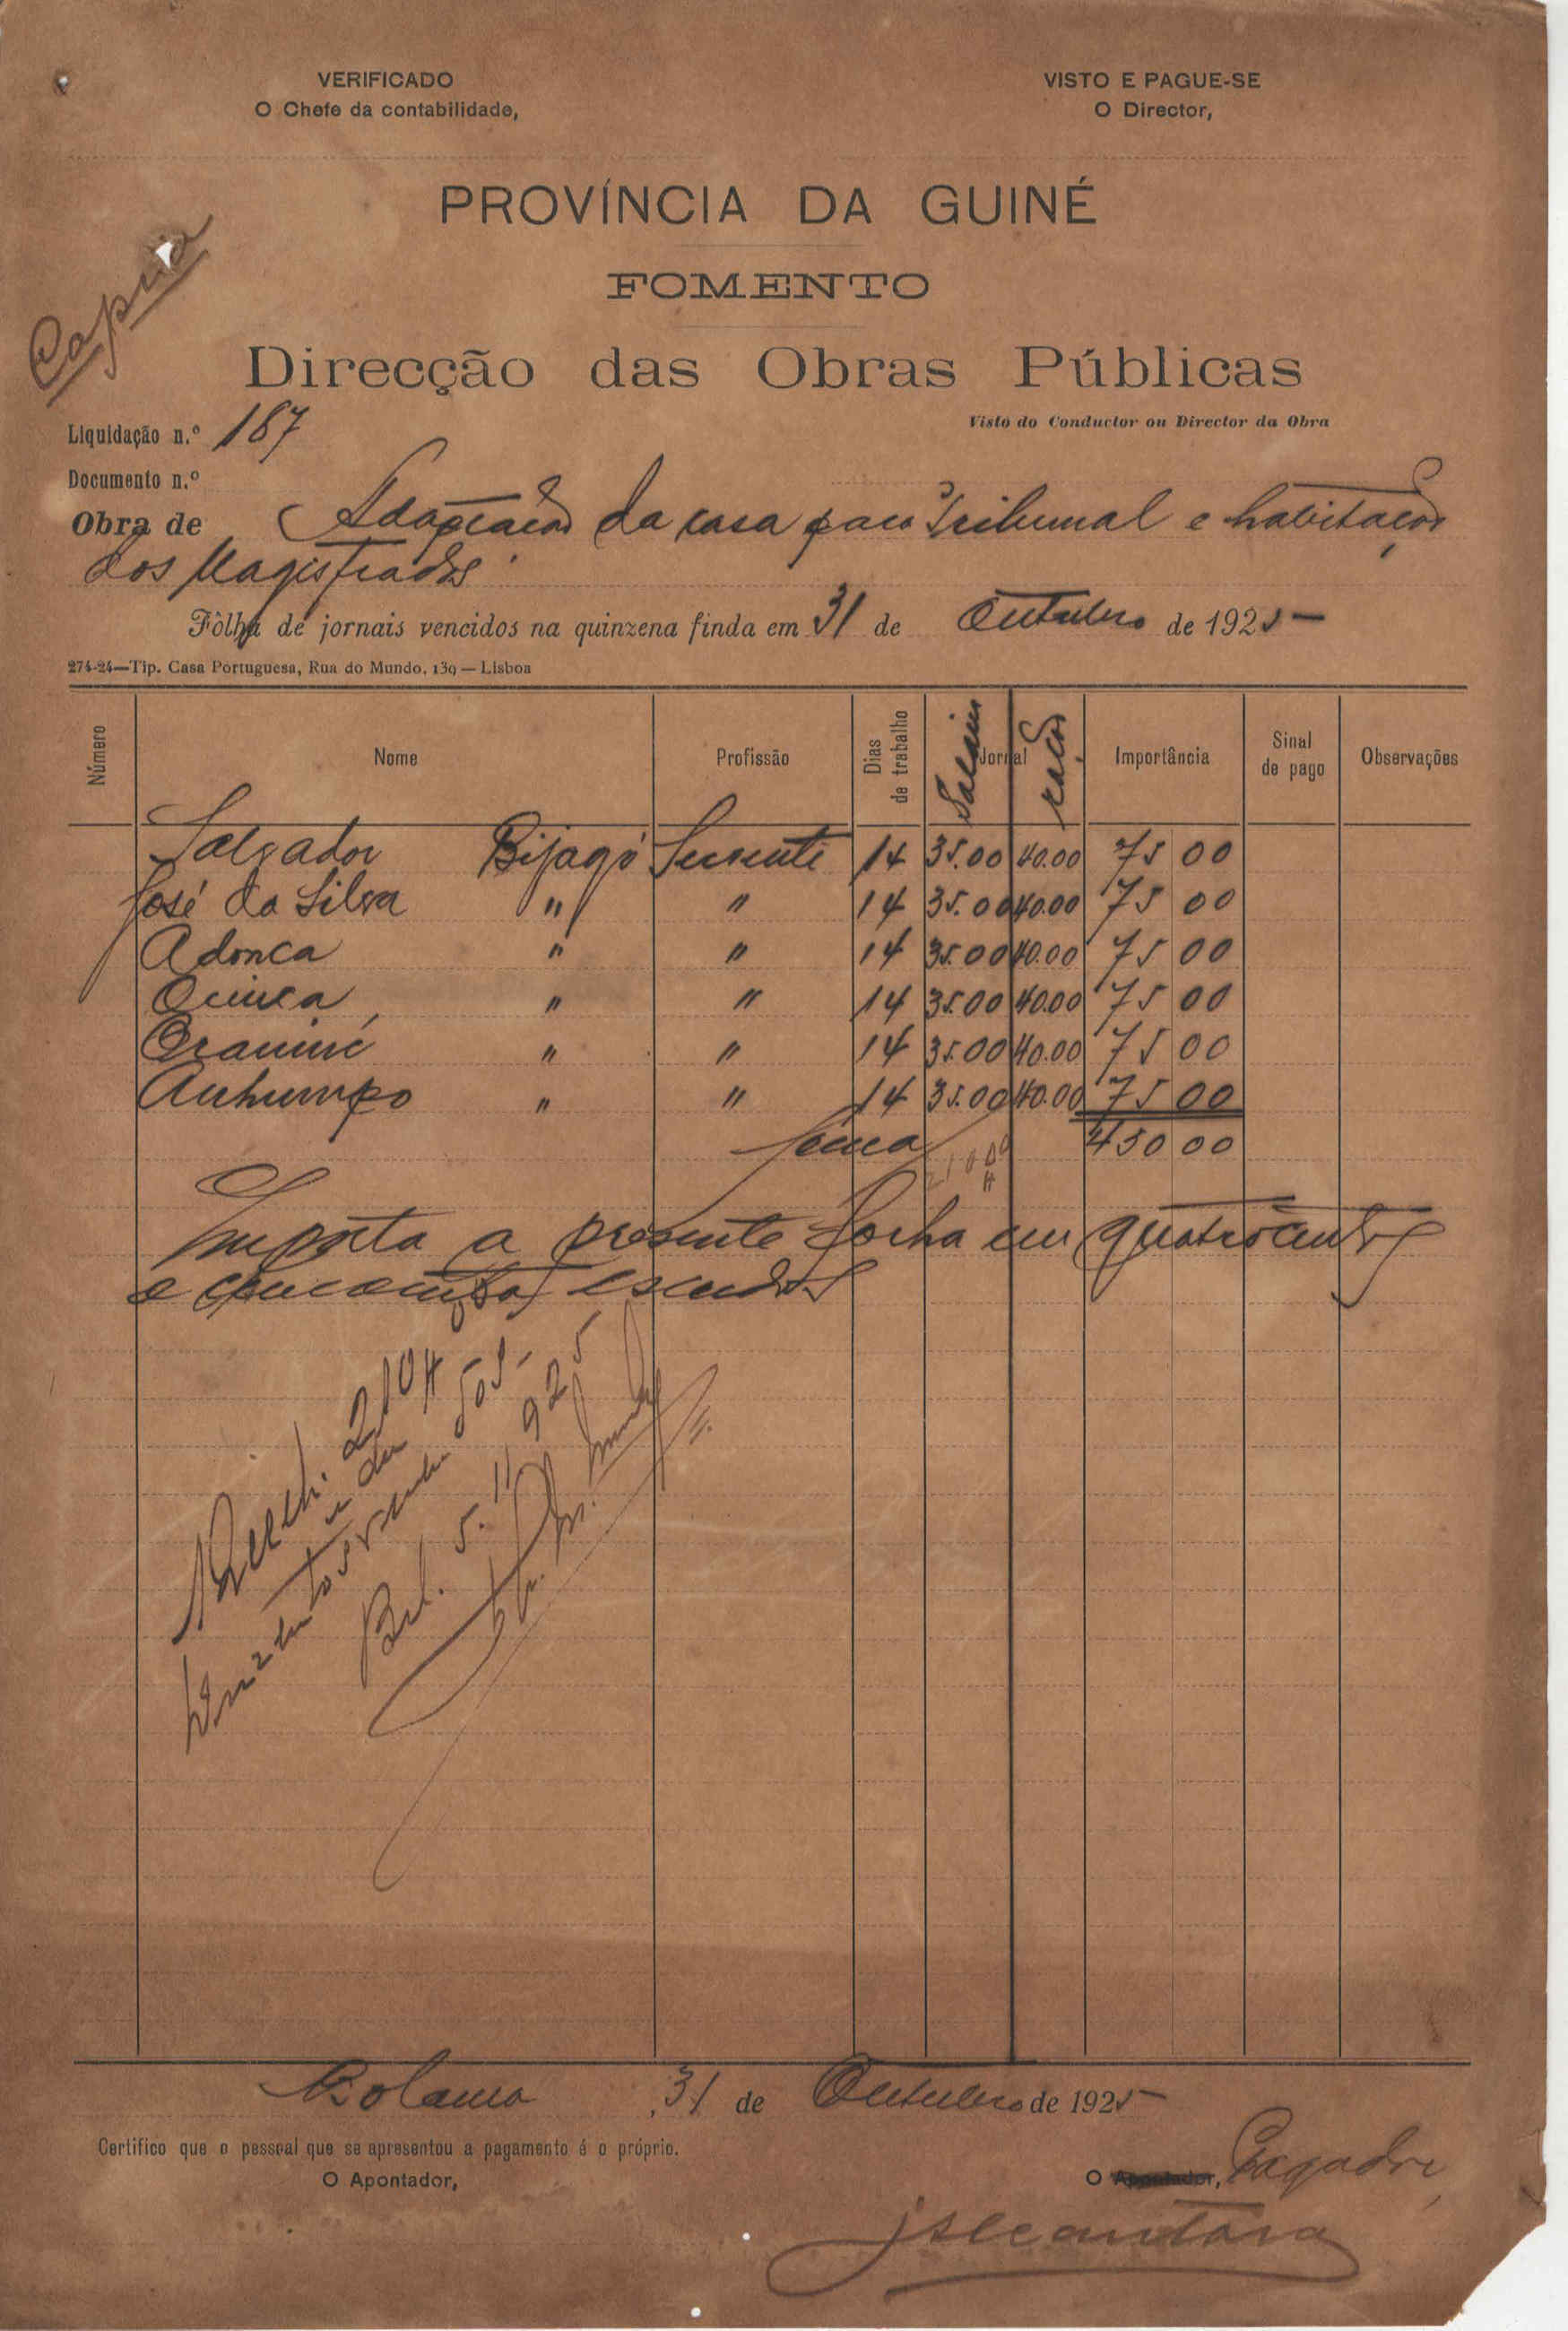 VERIFICADO
O Chefe da contabilidade,
VISTO E PAGUE-SE
O Director,
PROVÍNCIA DA GUINÉ
FOMENTO
Copia
Direcção das Obras Públicas
Visto do Conductor ou Director da Obra
Liquidação n.º 187
Documento n.º
Obra de Adaptação da casa para Tribunal e habitação
dos Magistrados
Fôlha de jornais vencidos na quinzena finda em 31 de Outubro de 1925
274-24—Tip. Casa Portuguesa, Rua do Mundo, 139 — Lisboa
Número Nome Profissão Dias de trabalho Jornal Salario ração Importância Sinal de pago Observações
Salvador Bijagó Servente 14 35.00 40.00 75 00
José da Silva " " 14 35.00 40.00 75 00
Adonca " " 14 35.00 40.00 75 00
" " 14 35.00 40.00 75 00
" " 14 35.00 40.00 75 00
" " 14 35.00 40.00 75 00
Soma 450 00
210 00
Importa a presente folha em quatrocentos
e cincoenta escudos
Recebi 210$
5.11.925
Bolama, 31 de Outubro de 1925
Certifico que o pessoal que se apresentou a pagamento é o próprio.
O Apontador,
O Apontador, Pagador,
JAlcantara